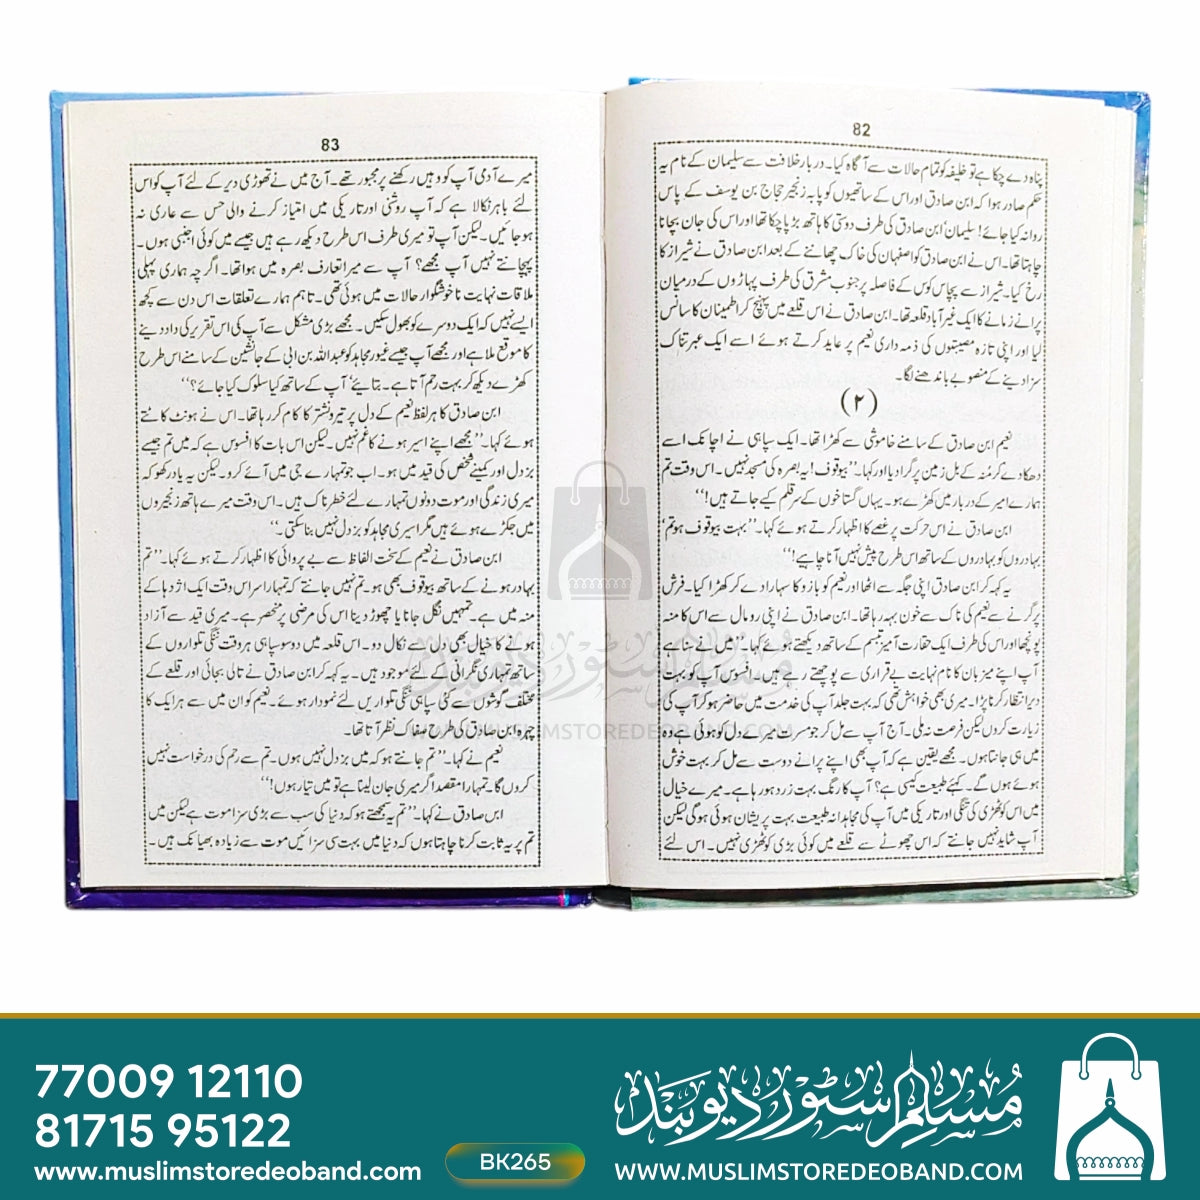 82
پناہ دے چکا ہے تو خلیفہ کو تمام حالات سے آگاہ کیا۔ دربار خلافت سے سلیمان کے نام یہ
حکم صادر ہوا کہ ابن صادق اور اس کے ساتھیوں کو پابہ زنجیر حجاج بن یوسف کے پاس
روانہ کیا جائے! سلیمان ابن صادق کی طرف دوستی کا ہاتھ بڑھا چکا تھا اور اس کی جان بچانا
چاہتا تھا۔ اس نے ابن صادق کو اصفہان کی خاک چھاننے کے بعد ابن صادق نے شیراز کا
رخ کیا۔ شیراز سے پچاس کوس کے فاصلہ پر جنوب مشرق کی طرف پہاڑوں کے درمیان
پرانے زمانے کا ایک غیر آباد قلعہ تھا۔ ابن صادق نے اس قلعے میں پہنچ کر اطمینان کا سانس
لیا اور اپنی تازہ مصیبتوں کی ذمہ داری نعیم پر عاید کرتے ہوئے اسے ایک عبرتناک
سزا دینے کے منصوبے باندھنے لگا۔
(۲)
نعیم ابن صادق کے سامنے خاموشی سے کھڑا تھا۔ ایک سپاہی نے اچانک اسے
دھکا دے کر مُنہ کے بل زمین پر گرا دیا اور کہا۔ ”بیوقوف! یہ بصرہ کی مسجد نہیں۔ اس وقت تم
ہمارے امیر کے دربار میں کھڑے ہو۔ یہاں گستاخوں کے سر قلم کیے جاتے ہیں!“
ابن صادق نے اس حرکت پر غصے کا اظہار کرتے ہوئے کہا۔ ”بہت بیوقوف ہو تم!
بہادروں کو بہادروں کے ساتھ اس طرح پیش نہیں آنا چاہیے!“
یہ کہہ کر ابن صادق اپنی جگہ سے اٹھا اور نعیم کو بازو کا سہارا دے کر کھڑا کیا۔ فرش
پر گرنے سے نعیم کی ناک سے خون بہہ رہا تھا۔ ابن صادق نے اپنی رومال سے اس کا منہ
پونچھا اور اس کی طرف ایک حقارت آمیز تبسم کے ساتھ دیکھتے ہوئے کہا۔ ”میں نے سنا ہے
آپ اپنے میزبان کا نام نہایت بے قراری سے پوچھتے رہے ہیں۔ افسوس آپ کو بہت
دیر انتظار کرنا پڑا۔ میری بھی خواہش تھی کہ بہت جلد آپ کی خدمت میں حاضر ہو کر آپ کی
زیارت کروں لیکن فرصت نہ ملی۔ آج آپ سے مل کر جو مسرت میرے دل کو ہوئی ہے وہ
میں ہی جانتا ہوں۔ مجھے یقین ہے کہ آپ بھی اپنے پرانے دوست سے مل کر بہت خوش
ہوئے ہوں گے۔ کہیے طبیعت کیسی ہے؟ آپ کا رنگ بہت زرد ہو رہا ہے۔ میرے خیال
میں اس کوٹھڑی کی تنگی اور تاریکی میں آپ کی مجاہدانہ طبیعت بہت پریشان ہوئی ہوگی لیکن
آپ شاید نہیں جانتے کہ اس چھوٹے سے قلعے میں کوئی بڑی کوٹھڑی نہیں۔ اس لئے
83
میرے آدمی آپ کو وہیں رکھنے پر مجبور تھے۔ آج میں نے تھوڑی دیر کے لئے آپ کو اس
لئے باہر نکالا ہے کہ آپ روشنی اور تاریکی میں امتیاز کرنے والی حس سے عاری نہ
ہو جائیں۔ لیکن آپ تو میری طرف اس طرح دیکھ رہے ہیں جیسے میں کوئی اجنبی ہوں۔
پہچانتے نہیں آپ مجھے؟ آپ سے میرا تعارف بصرہ میں ہوا تھا۔ اگرچہ ہماری پہلی
ملاقات نہایت ناخوشگوار حالات میں ہوئی تھی۔ تاہم ہمارے تعلقات اس دن سے کچھ
ایسے نہیں کہ ایک دوسرے کو بھول سکیں۔ مجھے بڑی مشکل سے آپ کی اس تقریر کی داد دینے
کا موقع ملا ہے اور مجھے آپ جیسے غیور مجاہد کو عبداللہ بن ابی کے جانشین کے سامنے اس طرح
کھڑے دیکھ کر بہت رحم آتا ہے۔ بتائیے آپ کے ساتھ کیا سلوک کیا جائے؟“
ابن صادق کا ہر لفظ نعیم کے دل پر تیر و نشتر کا کام کر رہا تھا۔ اس نے ہونٹ کاٹتے
ہوئے کہا۔ ”مجھے اپنے اسیر ہونے کا غم نہیں۔ لیکن اس بات کا افسوس ہے کہ میں تم جیسے
بزدل اور کمینے شخص کی قید میں ہو۔ اب جو تمہارے جی میں آئے کرو۔ لیکن یہ یاد رکھو کہ
میری زندگی اور موت دونوں تمہارے لئے خطرناک ہیں۔ اس وقت میرے ہاتھ زنجیروں
میں جکڑے ہوئے ہیں مگر اسیری مجاہد کو بزدل نہیں بنا سکتی۔“
ابن صادق نے نعیم کے سخت الفاظ سے بے پروائی کا اظہار کرتے ہوئے کہا۔ ”تم
بہادر ہونے کے ساتھ بیوقوف بھی ہو۔ تم نہیں جانتے کہ تمہارا سر اس وقت ایک اژدہا کے
منہ میں ہے۔ تمہیں نگل جانا یا چھوڑ دینا اس کی مرضی پر منحصر ہے۔ میری قید سے آزاد
ہونے کا خیال بھی دل سے نکال دو۔ اس قلعہ میں دو سو سپاہی ہر وقت ننگی تلواروں کے
ساتھ تمہاری نگرانی کے لئے موجود ہیں۔ یہ کہہ کر ابن صادق نے تالی بجائی اور قلعے کے
مختلف گوشوں سے کئی سپاہی ننگی تلواریں لئے نمودار ہوئے۔ نعیم کو ان میں سے ہر ایک کا
چہرہ ابن صادق کی طرح سفاک نظر آتا تھا۔
نعیم نے کہا۔ ”تم جانتے ہو کہ میں بزدل نہیں ہوں۔ تم سے رحم کی درخواست نہیں
کروں گا۔ تمہارا مقصد اگر میری جان لینا ہے تو میں تیار ہوں!“
ابن صادق نے کہا۔ ”تم یہ سمجھتے ہو کہ دنیا کی سب سے بڑی سزا موت ہے لیکن میں
تم پر یہ ثابت کرنا چاہتا ہوں کہ دنیا میں بہت سی سزائیں موت سے زیادہ بھیانک ہیں۔
مسلم سٹور دیوبند
WWW.MUSLIMSTOREDEOBAND.COM
77009 12110
81715 95122
www.muslimstoredeoband.com
BK265
مسلم سٹور دیوبند
WWW.MUSLIMSTOREDEOBAND.COM